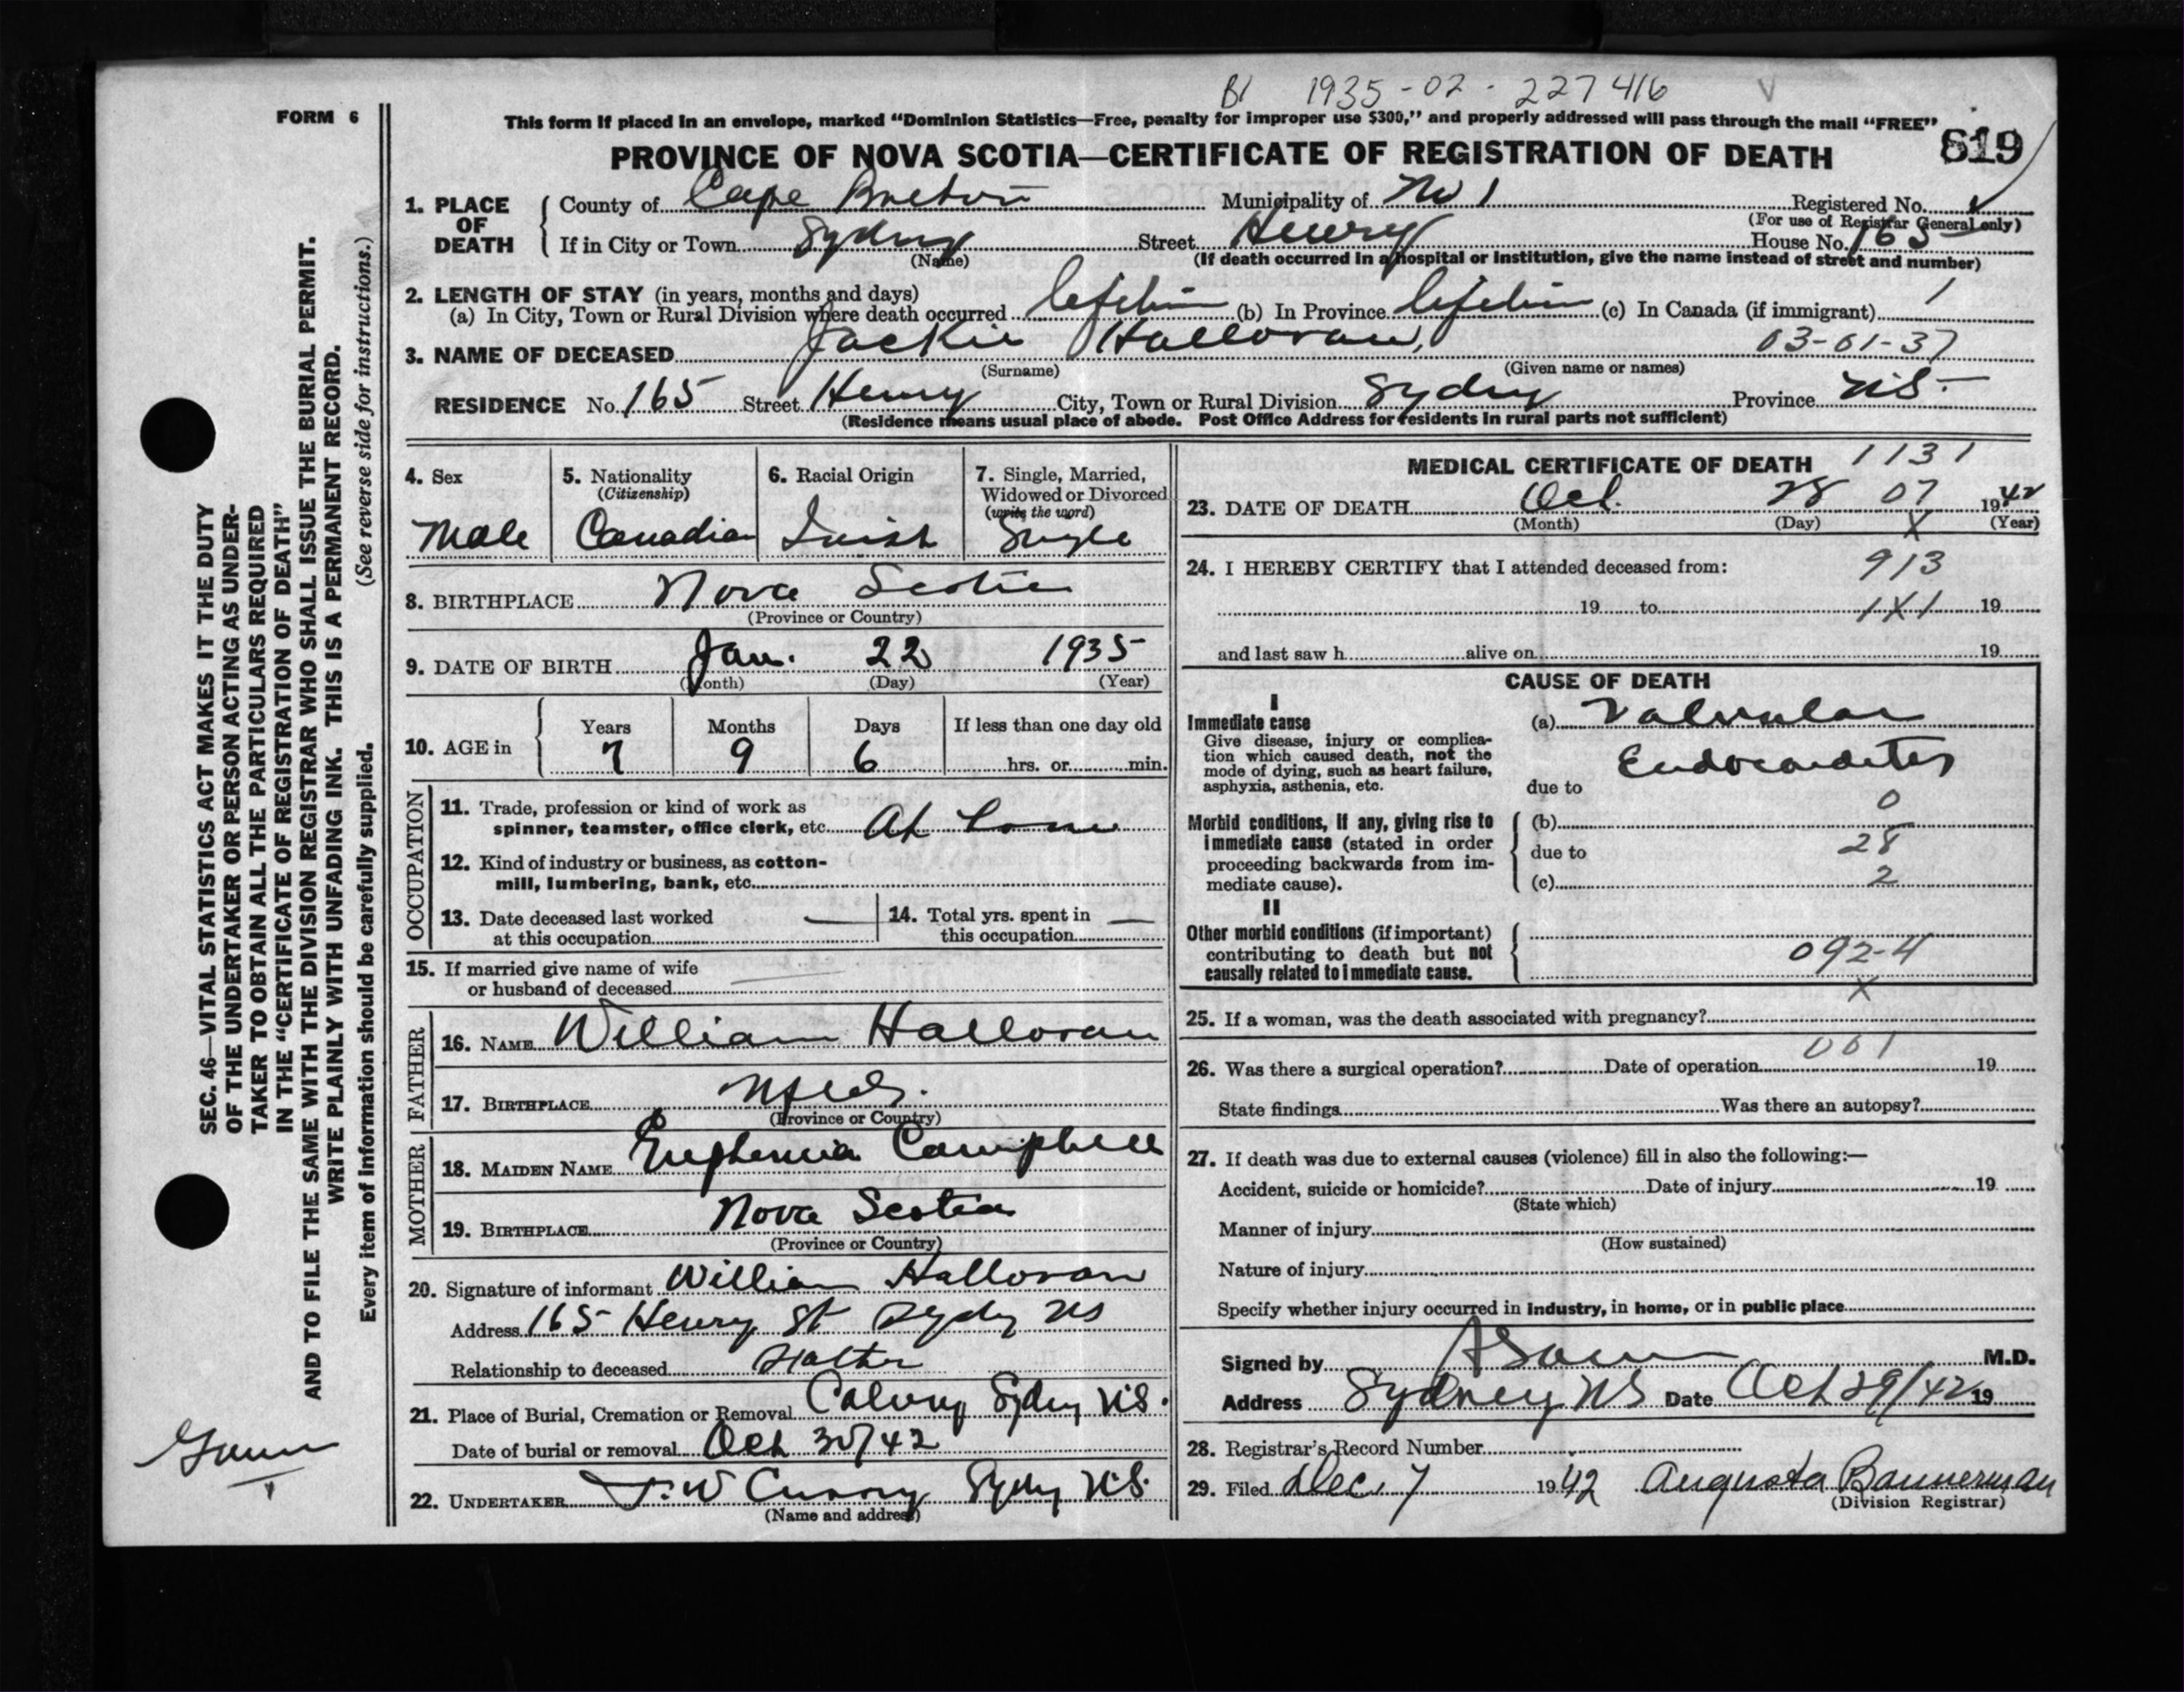 B1 1935-02-227416
FORM 6
This form if placed in an envelope, marked "Dominion Statistics—Free, penalty for improper use $300," and properly addressed will pass through the mail "FREE"
PROVINCE OF NOVA SCOTIA—CERTIFICATE OF REGISTRATION OF DEATH 819
1. PLACE OF DEATH
County of Cape Breton Municipality of No 1 Registered No.
(For use of Registrar General only)
If in City or Town Sydney Street Henry House No. 165
(Name) (If death occurred in a hospital or institution, give the name instead of street and number)
2. LENGTH OF STAY (in years, months and days)
(a) In City, Town or Rural Division where death occurred lifetime (b) In Province lifetime (c) In Canada (if immigrant) 1
3. NAME OF DECEASED Jackie Halloran, 03-01-37
(Surname) (Given name or names)
RESIDENCE No. 165 Street Henry City, Town or Rural Division Sydney Province N.S.
(Residence means usual place of abode. Post Office Address for residents in rural parts not sufficient)
4. Sex
Male
5. Nationality
(Citizenship)
Canadian
6. Racial Origin
Irish
7. Single, Married,
Widowed or Divorced
(write the word)
Single
8. BIRTHPLACE Nova Scotia
(Province or Country)
9. DATE OF BIRTH Jan. 22 1935
(Month) (Day) (Year)
10. AGE in
Years Months Days If less than one day old
7 9 6 hrs. or min.
OCCUPATION
11. Trade, profession or kind of work as
spinner, teamster, office clerk, etc. At home
12. Kind of industry or business, as cotton-
mill, lumbering, bank, etc.
13. Date deceased last worked
at this occupation
14. Total yrs. spent in
this occupation
15. If married give name of wife
or husband of deceased
FATHER
16. NAME William Halloran
17. BIRTHPLACE Nfld.
(Province or Country)
MOTHER
18. MAIDEN NAME Euphemia Campbell
19. BIRTHPLACE Nova Scotia
(Province or Country)
20. Signature of informant William Halloran
Address 165 Henry St Sydney NS
Relationship to deceased Father
21. Place of Burial, Cremation or Removal Calvary Sydney N.S.
Date of burial or removal Oct 30/42
22. UNDERTAKER T. W Curry Sydney N.S.
(Name and address)
MEDICAL CERTIFICATE OF DEATH 1131
23. DATE OF DEATH Oct. 28 07 1942
(Month) (Day) X (Year)
24. I HEREBY CERTIFY that I attended deceased from: 913
19 to 1X1 19
and last saw h alive on 19
CAUSE OF DEATH
I
Immediate cause
Give disease, injury or complica-
tion which caused death, not the
mode of dying, such as heart failure,
asphyxia, asthenia, etc.
(a) Valvular
Endocarditis
due to
0
Morbid conditions, if any, giving rise to
immediate cause (stated in order
proceeding backwards from im-
mediate cause).
(b)
due to 28
(c) 2
II
Other morbid conditions (if important)
contributing to death but not
causally related to immediate cause.
092-4
X
25. If a woman, was the death associated with pregnancy?
061
26. Was there a surgical operation? Date of operation 19
State findings Was there an autopsy?
27. If death was due to external causes (violence) fill in also the following:—
Accident, suicide or homicide? Date of injury 19
(State which)
Manner of injury
(How sustained)
Nature of injury
Specify whether injury occurred in industry, in home, or in public place
Signed by M.D.
Address Sydney NS Date Oct 29/42 19
28. Registrar's Record Number
29. Filed Dec. 7 1942 Augusta Bannerman
(Division Registrar)
SEC. 46—VITAL STATISTICS ACT MAKES IT THE DUTY
OF THE UNDERTAKER OR PERSON ACTING AS UNDER-
TAKER TO OBTAIN ALL THE PARTICULARS REQUIRED
IN THE "CERTIFICATE OF REGISTRATION OF DEATH"
AND TO FILE THE SAME WITH THE DIVISION REGISTRAR WHO SHALL ISSUE THE BURIAL PERMIT.
WRITE PLAINLY WITH UNFADING INK. THIS IS A PERMANENT RECORD.
Every item of information should be carefully supplied. (See reverse side for instructions.)